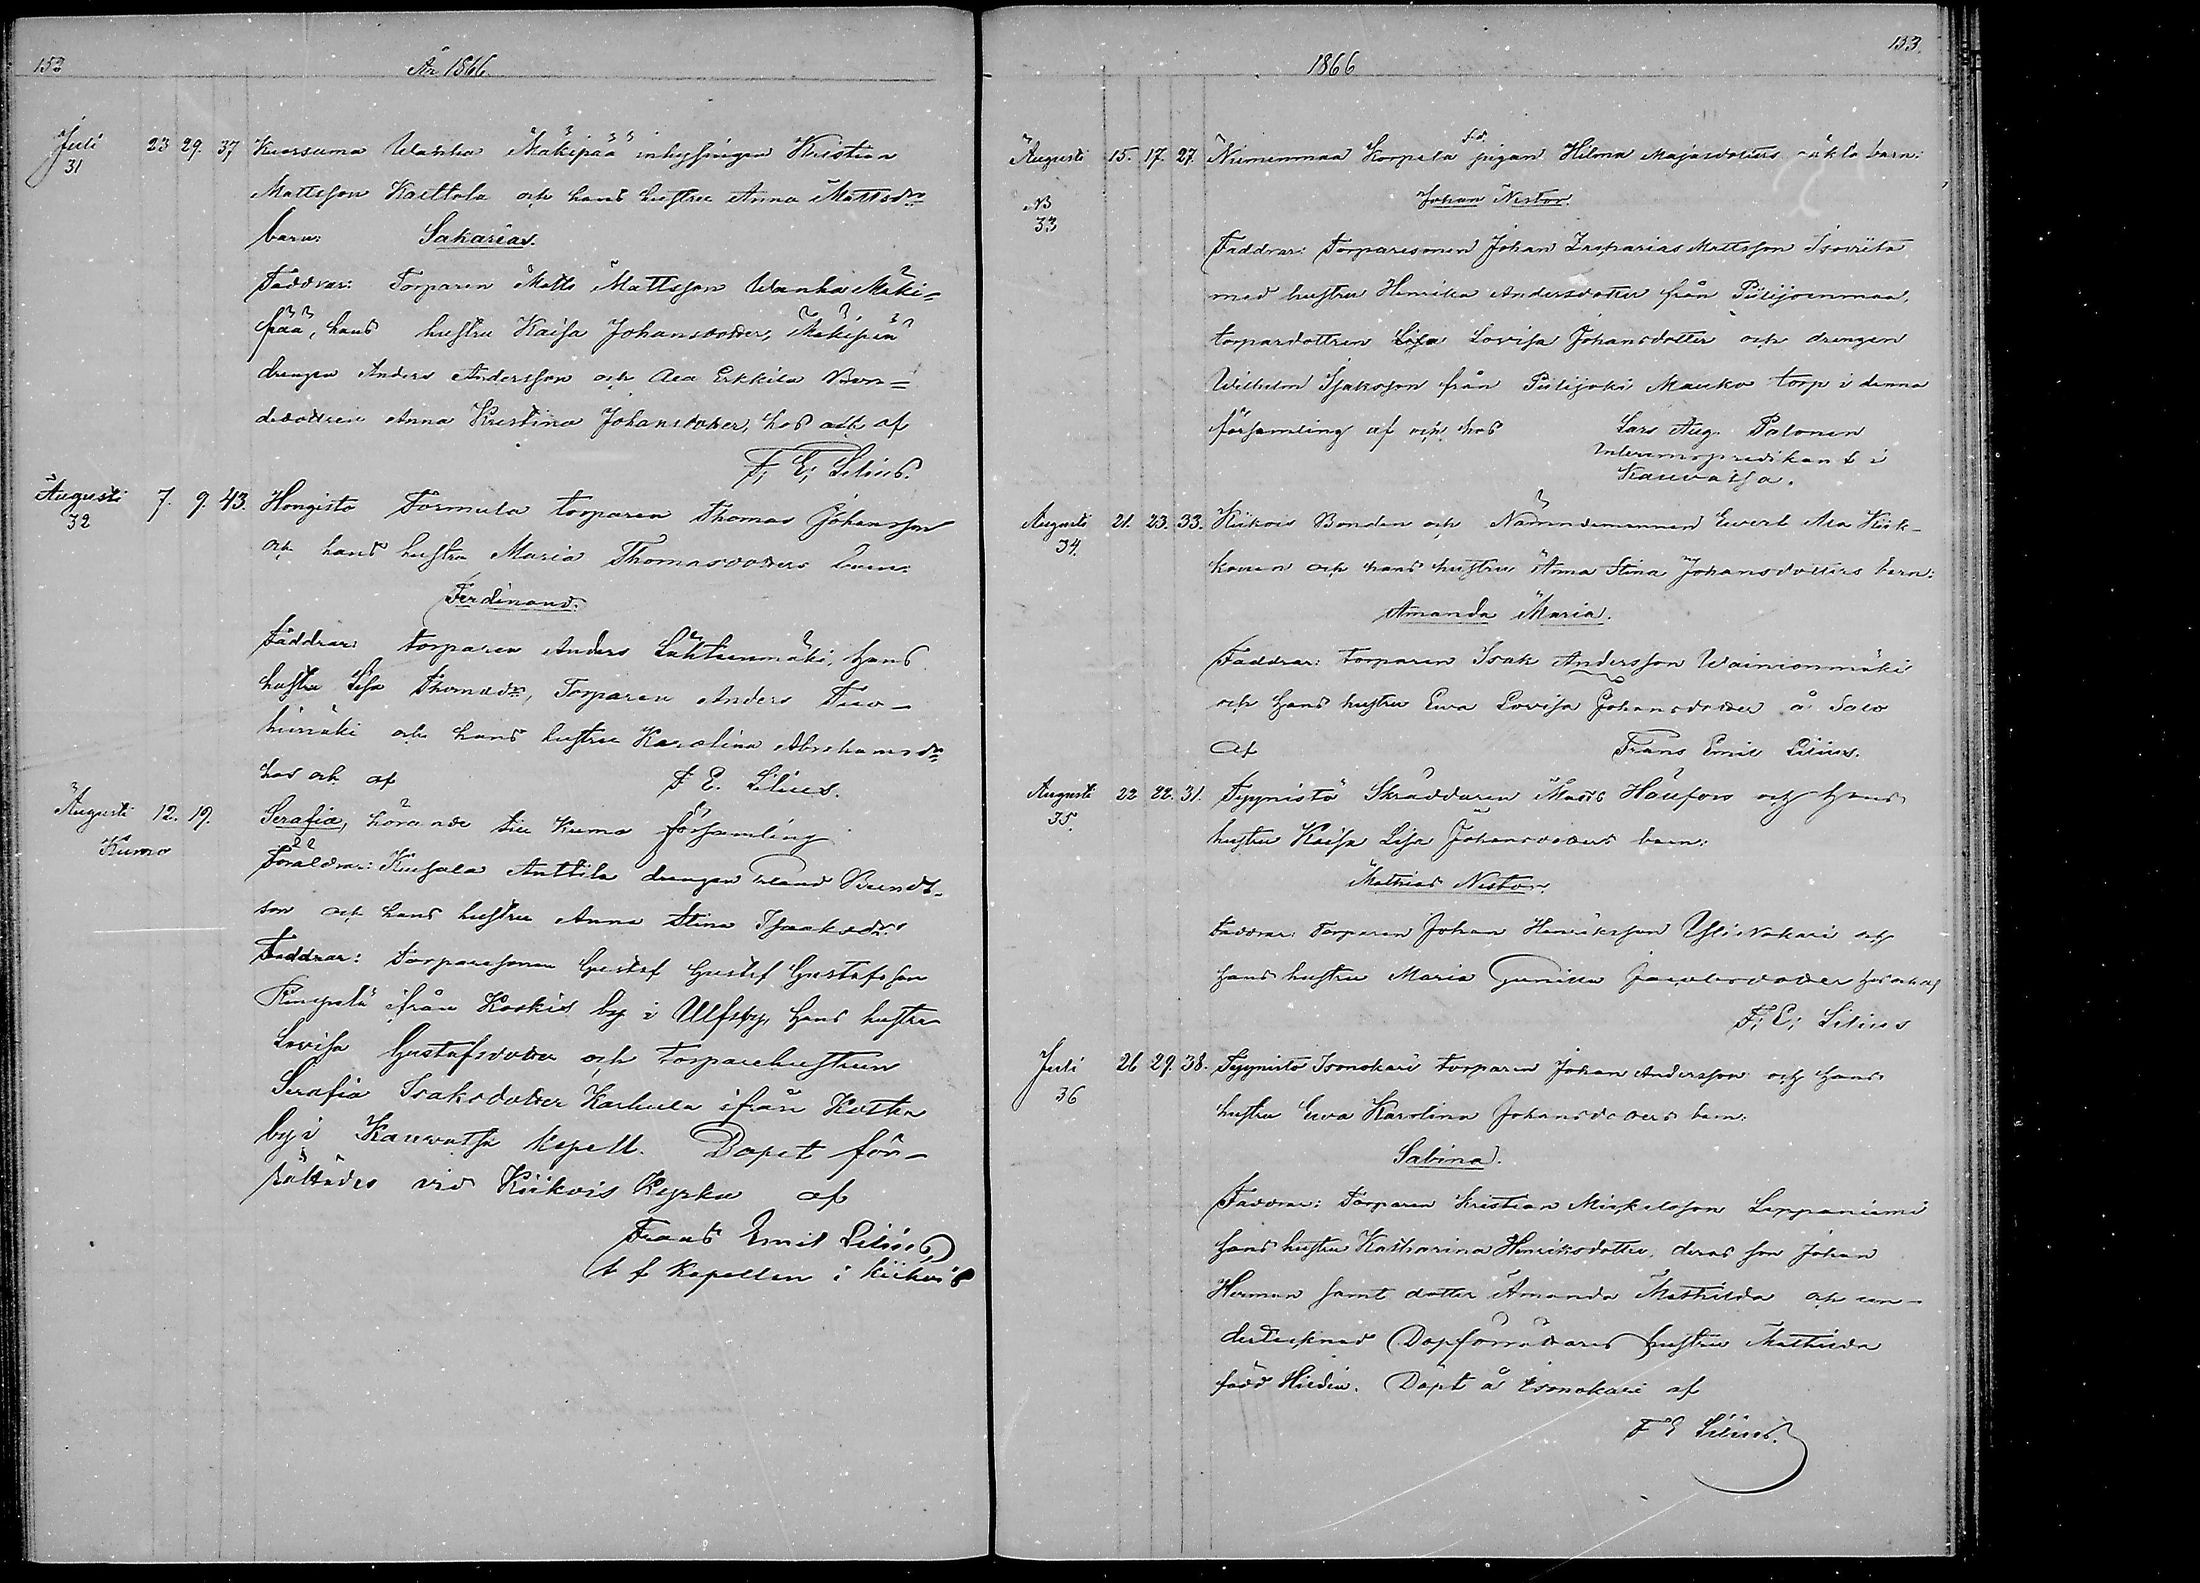 152
År 1866
Juli 23 29. 37 Kuorsuma Wanha Mäkipää inhysingen Kristian
31
Mattsson Kaittola och hans hustru Anna Mattsdr
barn: Sakarias.
Faddrar: Torparen Matts Mattsson Wanha Mäki=
pää, hans hustru Kaisa Johansdotter, Mäkipää
drengen Anders Andersson och Ala Erkkila Bon=
dedottren Anna Kristina Johansdotter, hos och af
F. E. Lilius.
Augusti 7. 9. 43. Hongisto Formula torparen Thomas Johansson
32
och hans hustru Maria Thomasdotters barn:
Ferdinand.
Faddrar: torparen Anders Lähteenmäki, hans
hustru Lisa Thomasdr, Torparen Anders
och hans hustru Karolina Abrahamsdr
hos och af F. E. Lilius.
Augusti 12. 19. Serafia, hörande till Kumo församling
Kumo
Föräldrar: Anttila drengen
son och hans hustru Anna Stina Isaaksdr.
Faddrar: Torparesonen Gustaf Gustafsson
ifrån Koskis by i Ulfsby, hans hustru
Lovisa Gustafsdotter och torparehustrun
Serafia Isaksdotter Karhula ifrån
by i Kauvatsa kapell. Dopet för-
rättades vid Kiikois Kyrka af
Frans Emil Lilius,
t f Kapellan i Kiikois
153.
1866
Augusti 15. 17. 27. Niemenmaa Korpela f.d. pigan Hilma Majasdotters oäkta barn:
NB
33
Johan Nestor.
Faddrar: Torparesonen Johan Zacharias Mattsson
med hustru Henrika Andersdotter från Piilijoenmaa,
torpardottren Lisa Lovisa Johansdotter och drengen
Wilhelm Isaksson från Piilijoki Mauko torp i denna
församling af och hos Lars Aug. Palonen
Interimspredikant i
Kauvatsa.
Augusti 21. 23. 33. Kiikois Bonden och Nämndemannen Evert Ala Kiik-
34.
konen och hans hustru Anna Stina Johansdotters barn:
Amanda Maria.
Faddrar: Torparen Isak Andersson Wainionmäki
och hans hustru Eva Lovisa Johansdotter å Salo
af Frans Emil Lilius.
Augusti 22 22. 31. Jyynistö Skräddaren Matts och hans
35.
hustru Kaisa Lisa Johansdotters barn:
Mathias Nestor.
Faddrar: Torparen Johan Henriksson Yli Nokari och
hans hustru Maria Gunilla Jacobsdotter hos och af
F. E. Lilius
Juli 26 29. 38. Jyynistö Isonokari torparen Johan Andersson och hans
36
hustru Eva Karolina Johansdotters barn:
Sabina.
Faddrar: Torparen Kristian Mickelsson Leppäniemi
hans hustru Katharina Henriksdotter, deras son Johan
Herman samt dotter Amanda Mathilda och un-
dertecknad Dopförrättares hustru Mathilda
född Hildén. Döpt å Isonokari af
F E Lilius.